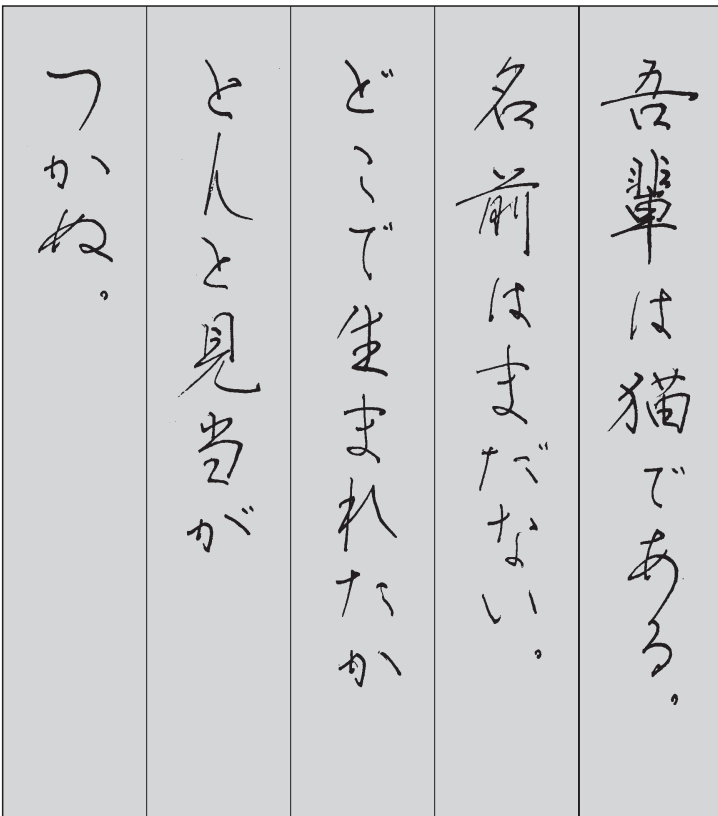 吾輩は猫である。
名前はまだない。
どこで生まれたか
とんと見当が
つかぬ。